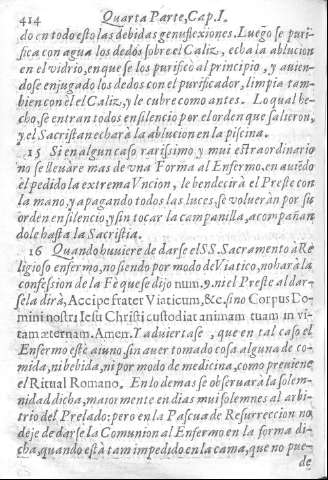 414 Quarta Parte, Cap. I.
do en todo esto las debidas genuflexiones. Luego se puri-
fica con agua los dedos sobre el Caliz, echa la ablucion
en el vidrio, en que se los purificò al principio, y auien-
dose enjugado los dedos con el purificador, limpia tam-
bien con èl el Caliz, y le cubre como antes. Lo qual he-
cho, se entran todos en silencio por el orden que salieron,
y el Sacristan echarà la ablucion en la piscina.
15 Si en algun caso rarissimo y mui estraordinario
no se lleuàre mas de vna Forma al Enfermo, en auiẽdo
èl pedido la extrema Vncion, le bendecirà el Preste con
la mano, y apagando todos las luces, se volueràn por su
orden en silencio, y sin tocar la campanilla, acompañan
dole hasta la Sacristia.
16 Quando huuiere de darse el SS. Sacramento a Re
ligioso enfermo, no siendo por modo de Viatico, no harà la
confession de la Fè que se dijo num. 9. ni el Preste al dar-
sela dirà, Accipe frater Viaticum, &c. sino Corpus Do-
mini nostri Iesu Christi custodiat animam tuam in vi-
tam æternam. Amen. Y aduiertase, que en tal caso el
Enfermo estè aiuno, sin auer tomado cosa alguna de co-
mida, ni bebida, ni por modo de medicina, como preuiene
el Ritual Romano. En lo demas se obseruarà la solem-
nidad dicha, maiormente en dias mui solemnes al arbi-
trio del Prelado: pero en la Pascua de Resurreccion no
deje de darse la Comunion al Enfermo en la forma di-
cha, quando està tam impedido en la cama, que no pue-
de